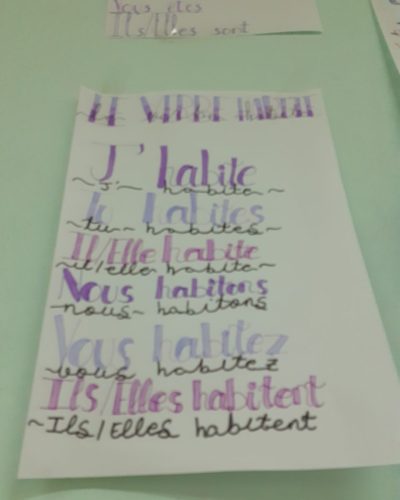 Vous êtes
Ils/Elles sont
LE VERBE HABITER
J'habite
~ J' ~ habite ~
Tu habites
~ tu ~ habites ~
Il/Elle habite
~ il/elle habite ~
Nous habitons
nous ~ habitons
Vous habitez
~ vous habitez
Ils/Elles habitent
~ Ils/Elles habitent